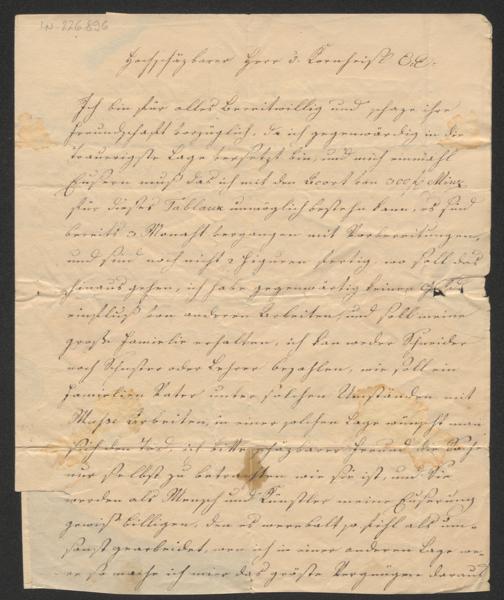 IN-226.896
Hochschäzbarer Herr v.
Ich bin für alles Bereitwillig und schaze ihre
Freundschaft vorzüglich, da ich gegenwärdig in die
traurigste Lage versetzt bin, und mich einmahl
Eusern muß das ich mit den von 300 f Münz
für dieses Tablaux unmöglich bestehn kann, es sind
bereits 3 Monaht vergangen mit Vorbereitungen,
und sind noch nicht 2 Figuren fertig, wo soll das
hinaus gehen, ich habe gegenwärtig keinen
einfluß von anderen Arbeiten, und soll meine
große Familie erhalten, ich kan weder Schneider
noch Schuster oder Lehrer bezahlen, wie soll ein
Familien Vater unter solchen Umständen mit
Muße arbeiten, in einer solchen Lage wünscht man
sich den Tod, ich bitte schäzbarer Freund die Sache
nur selbst zu betrachten wie sie ist, und Sie
werden als Mensch und Künstler meine Euserung
gewiß billigen, den es ist so viel als um-
sonst gearbeidet, wen ich in einer anderen Lage we-
re so mache ich mier das gröste Vergnügen daraus